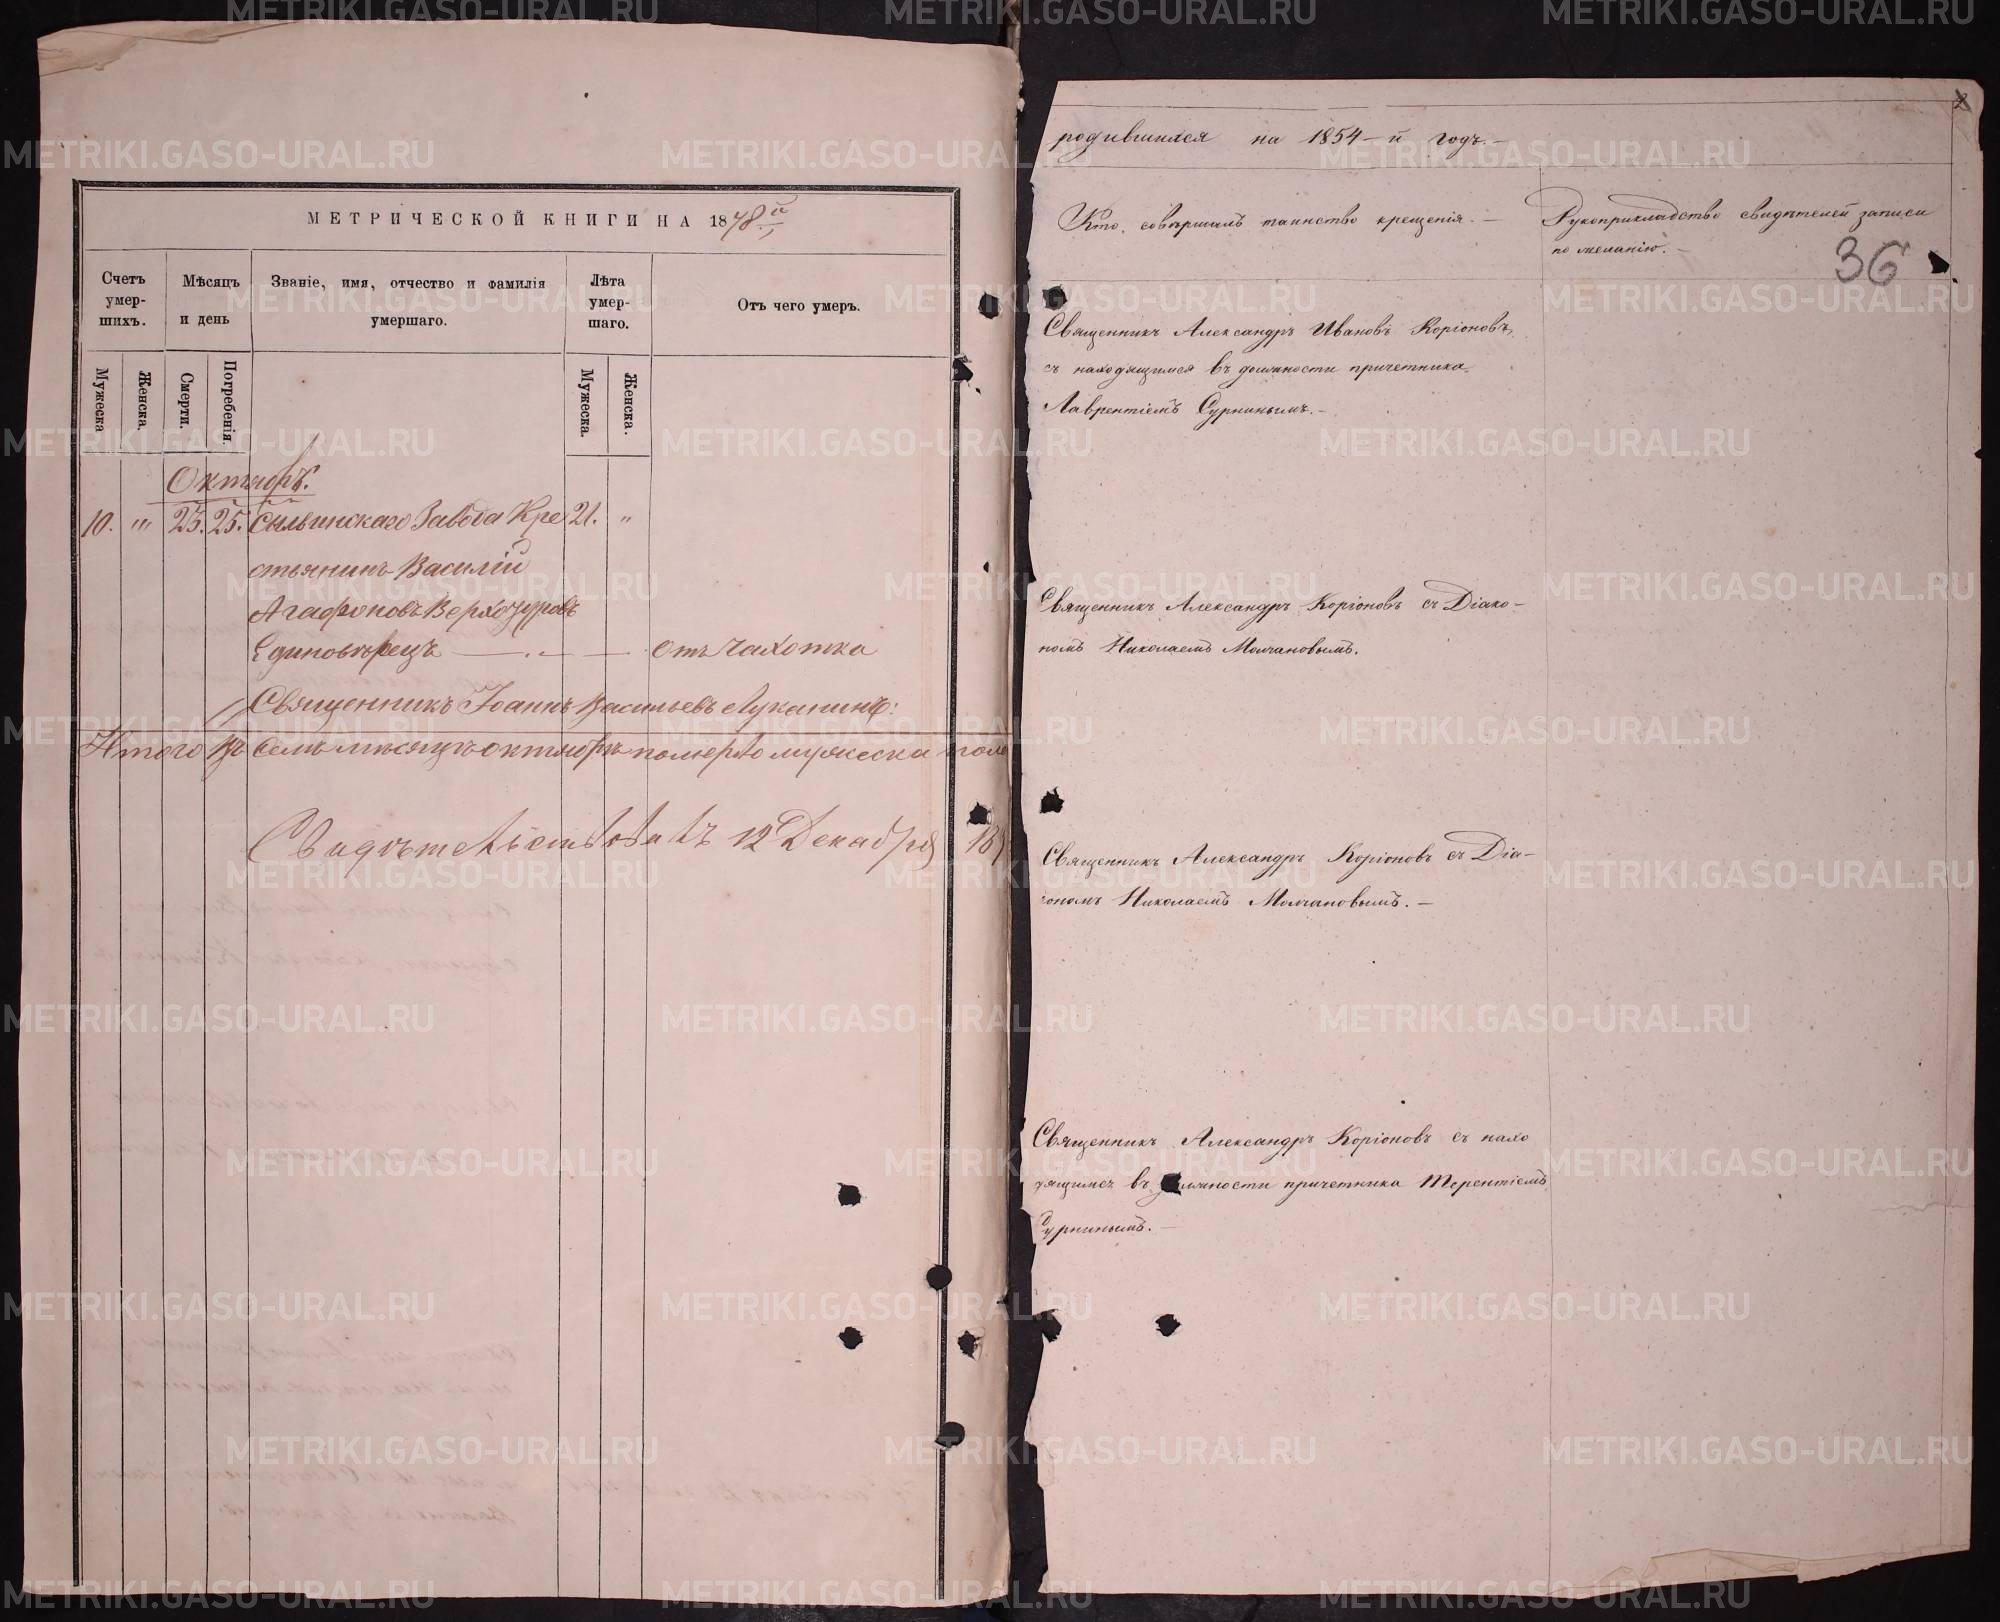 МЕТРИЧЕСКОЙ КНИГИ НА 1878й
Счетъ умер-шихъ.
Мѣсяцъ и день
Званіе, имя, отчество и фамилія умершаго.
Лѣта умер-шаго.
Отъ чего умеръ.
Мужеска
Женска.
Смерти.
Погребенія.
Мужеска.
Женска.
Октябрь.
10. " 23. 25. Сылвинскаго Завода Кре 21. "
стьянинъ Василій
Агафоновъ
Единовѣрецъ — . — — отъ чахотка
Священникъ Іоаннъ Васильевъ Луканинъ:
Итого въ семъ мѣсяцѣ октябрѣ померло мужеска пола
Свидѣтельствовалъ 12 Декабря 18
родившихся на 1854-й годъ. —
Кто совершалъ таинство крещенія. —
Рукоприкладство свидѣтелей записи
по желанію. —
36
Священникъ Александръ Ивановъ Коріоновъ,
съ находящимся въ должности причетника
Лаврентіемъ Сурнинымъ. —
Священникъ Александръ Коріоновъ съ Діако-
номъ Николаемъ Молчановымъ.
Священникъ Александръ Коріоновъ съ Діа-
кономъ Николаемъ Молчановымъ. —
Священникъ Александръ Коріоновъ съ нахо
дящимся въ должности причетника Терентіемъ
Сурнинымъ. —
METRIKI.GASO-URAL.RU